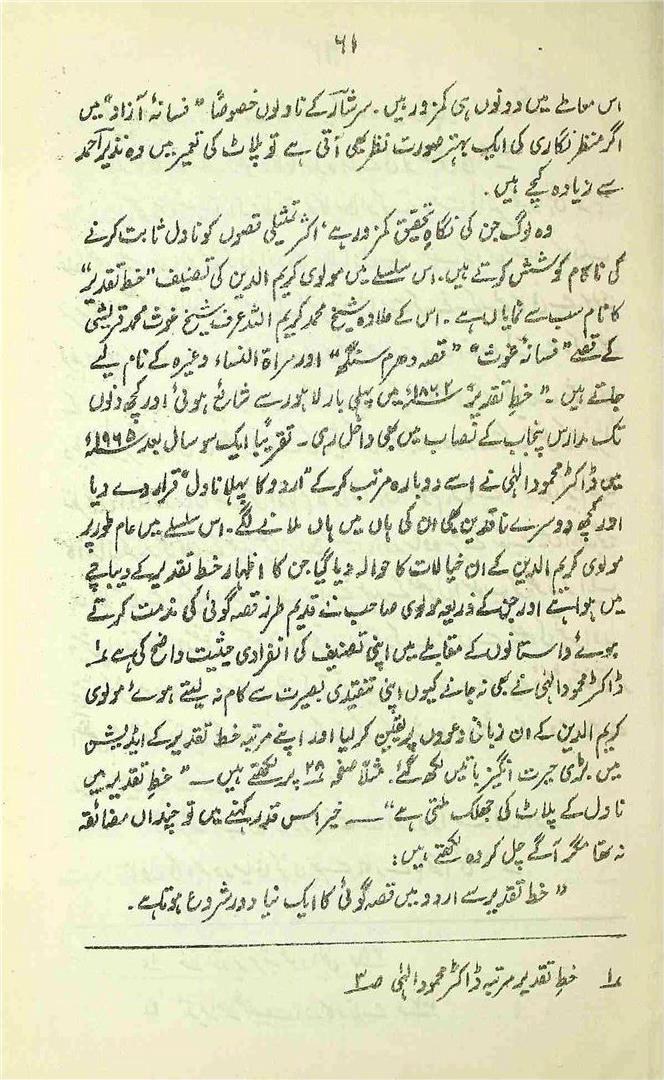 ۶۱
اس معاملے میں دونوں ہی کمزور ہیں۔ سرشار کے ناولوں خصوصاً "فسانۂ آزاد" میں
اگر منظر نگاری کی ایک بہتر صورت نظر بھی آتی ہے تو پلاٹ کی تعمیر میں وہ نذیر احمد
سے زیادہ کچے ہیں۔
وہ لوگ جن کی نگاہِ تحقیق کمزور ہے اکثر تمثیلی قصوں کو ناول ثابت کرنے
کی ناکام کوشش کرتے ہیں۔ اس سلسلے میں مولوی کریم الدین کی تصنیف "خط تقدیر"
کا نام سب سے نمایاں ہے۔ اس کے علاوہ شیخ محمد کریم اللہ عرف شیخ غوث محمد قریشی
کے قصے "فسانۂ غوث" "قصہ دھرم سنگھ" اور مراۃ النساء وغیرہ کے نام لیے
جاتے ہیں۔ "خطِ تقدیر" ۱۸۶۲ء میں پہلی بار لاہور سے شائع ہوئی اور کچھ دنوں
تک مدارس پنجاب کے نصاب میں بھی داخل رہی۔ تقریباً ایک سو سال بعد ۱۹۶۵ء
میں ڈاکٹر محمود الٰہی نے اسے دوبارہ مرتب کر کے "اردو کا پہلا ناول" قرار دے دیا
اور کچھ دوسرے ناقدین بھی ان کی ہاں میں ہاں ملانے لگے۔ اس سلسلے میں عام طور پر
مولوی کریم الدین کے ان خیالات کا حوالہ دیا گیا جن کا اظہار خط تقدیر کے دیباچے
میں ہوا ہے اور جن کے ذریعہ مولوی صاحب نے قدیم طرز قصہ گوئی کی مذمت کرتے
ہوئے داستانوں کے مقابلے میں اپنی تصنیف کی انفرادی حیثیت واضح کی ہے ؎۱
ڈاکٹر محمود الٰہی نے بھی نہ جانے کیوں اپنی تنقیدی بصیرت سے کام نہ لیتے ہوئے مولوی
کریم الدین کے ان زبانی دعووں پر یقین کر لیا اور اپنے مرتبہ خط تقدیر کے ایڈیشن
میں بڑی حیرت انگیز باتیں لکھ گئے۔ مثلاً صفحہ ۲۸ پر لکھتے ہیں — "خطِ تقدیر میں
ناول کے پلاٹ کی جھلک ملتی ہے" — خیر اس قدر کہنے میں تو چنداں مضائقہ
نہ تھا مگر آگے چل کر وہ لکھتے ہیں:
"خط تقدیر سے اردو میں قصہ گوئی کا ایک نیا دور شروع ہوتا ہے۔
؎۱ خطِ تقدیر مرتبہ ڈاکٹر محمود الٰہی ص ۳